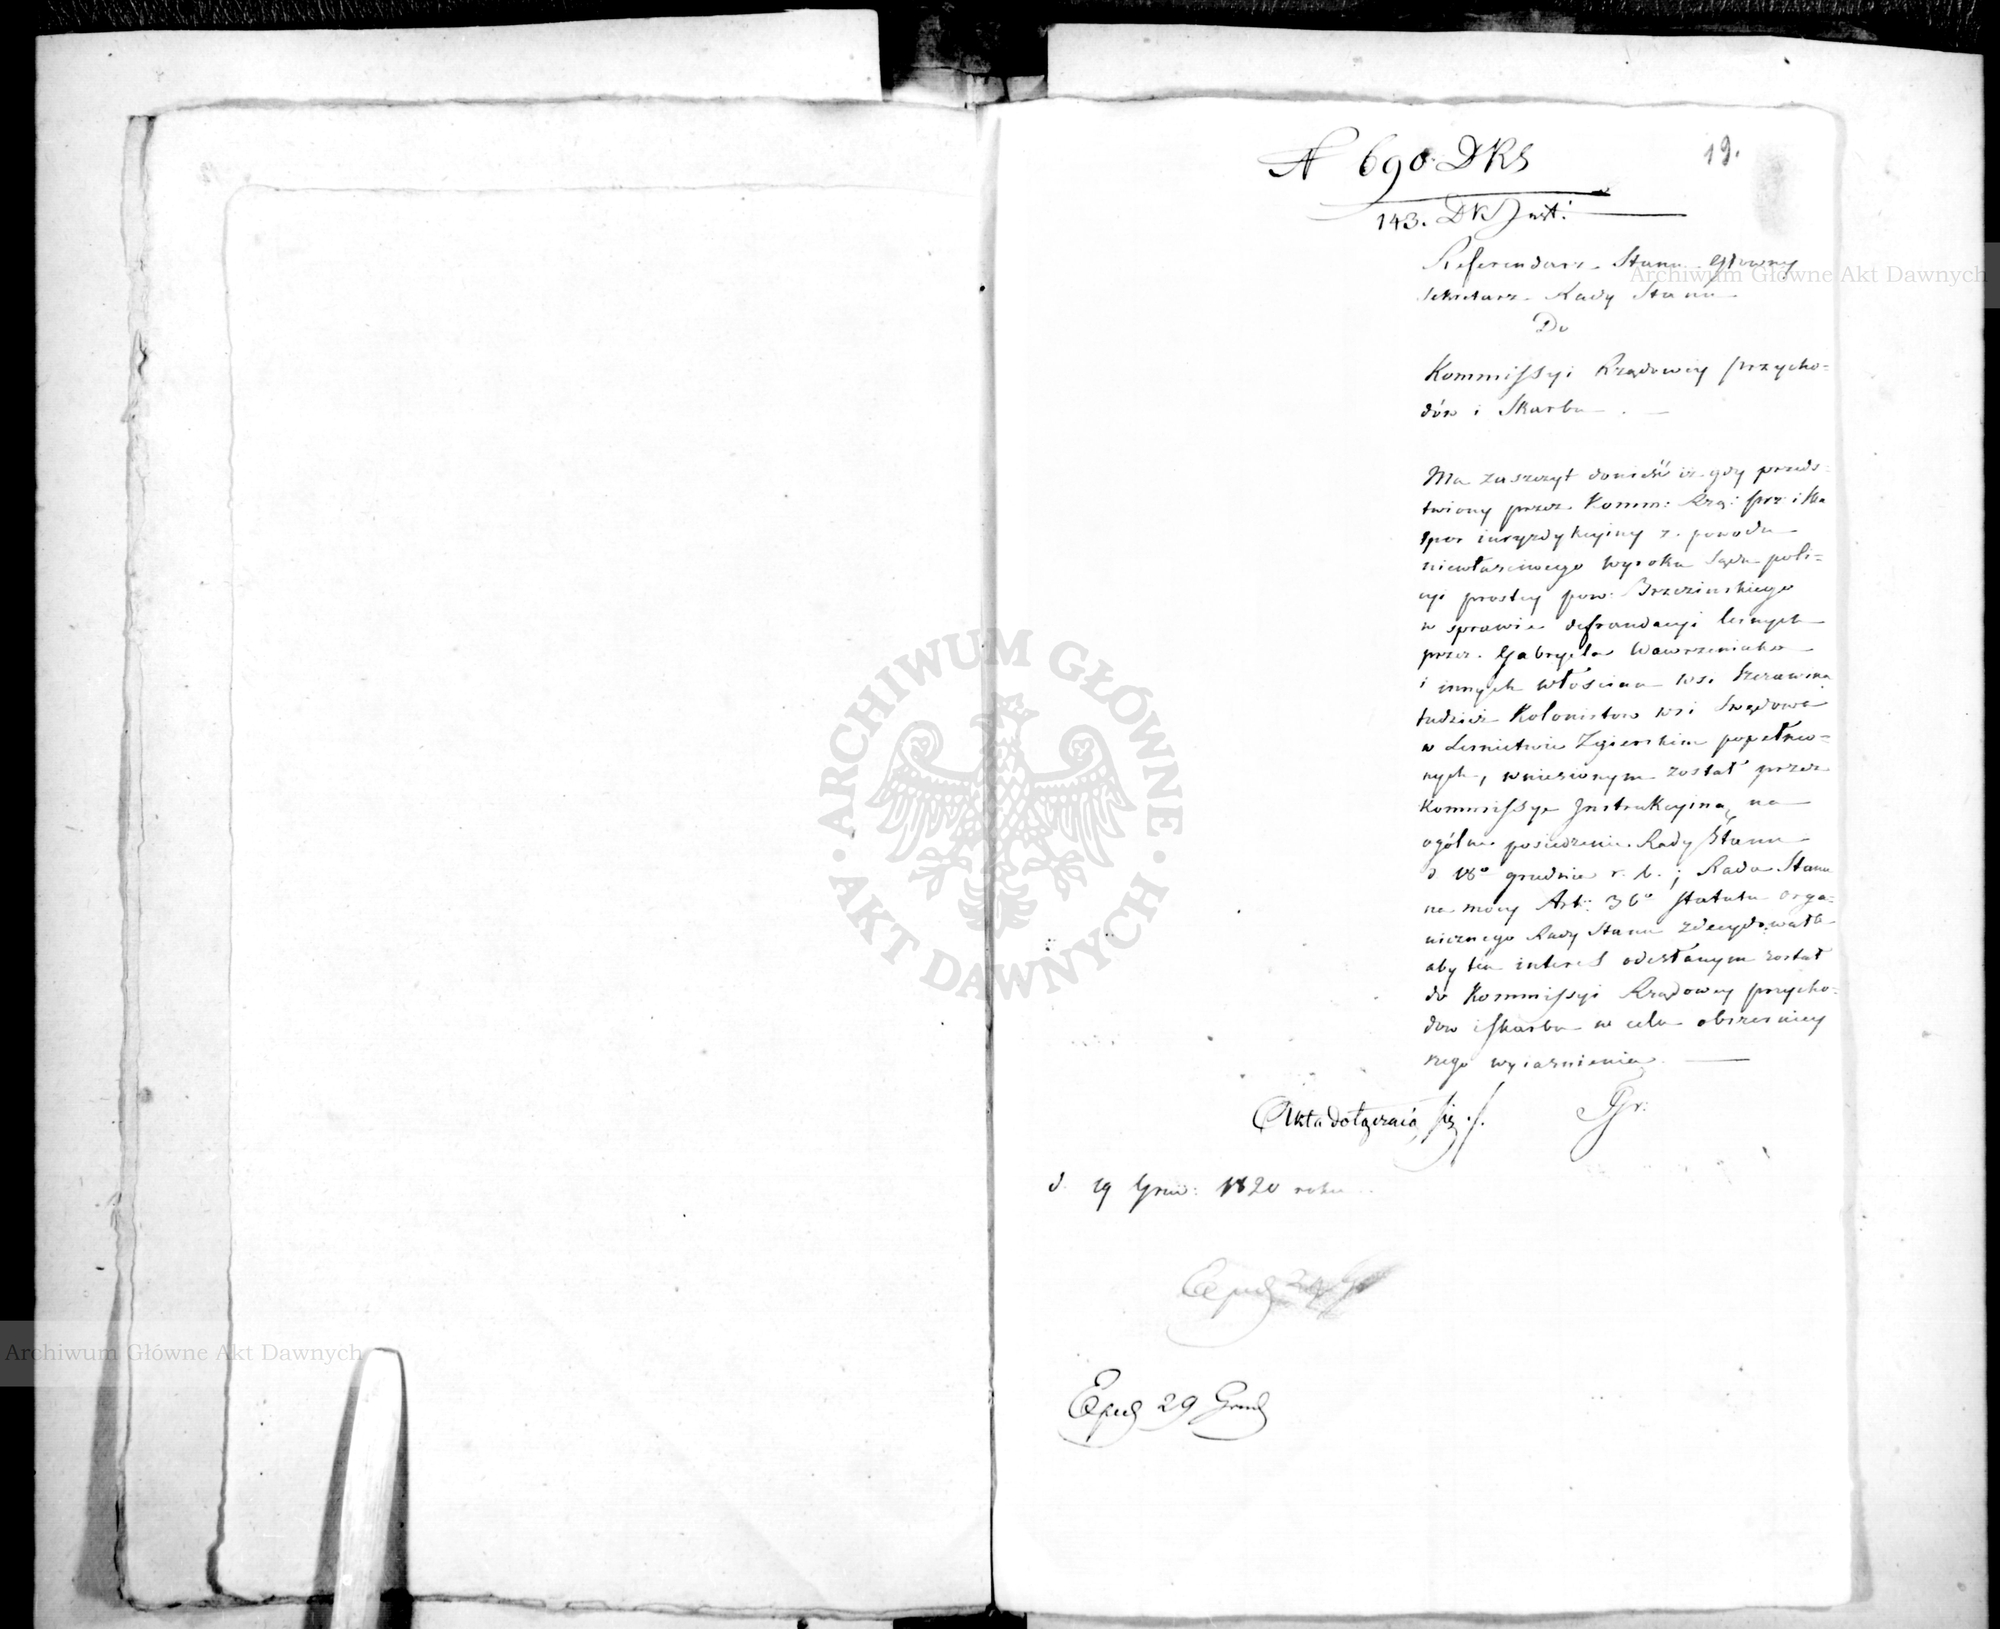 19.
N 690. DKS
143. DKJust:
Referendarz Stanu Główny
Sekretarz Rady Stanu
Do
Kommissyi Rządowey przycho=
dów i Skarbu
Ma zaszczyt donieść iż gdy przeds=
twiony przez Komm: Rzą: prz: i Ska
spor iuryzdykcyiny z powodu
niewłaściwego wyroku Sądu poli=
cyi prostey pow: Brzezinskiego
w sprawie defraudacyi leśnych
przez Gabryela Wawrzeniaka
i innych włościan wsi
tudzież Kolonistow wsi
w Leśnictwie Zgierskim popełnio=
nych, wniesionym został przez
Kommissyę Instrukcyiną na
ogólne posiedzenie Rady Stanu
d 18° grudnia r. b.; Rada Stanu
na mocy Art: 36° Statutu orga=
nicznego Rady Stanu zdecydowała
aby ten interes odesłanym został
do Kommissyi Rządowey przycho=
dow i Skarbu w celu obszerniey
szego wyiasnienia.
Akta dołączaią się ./.
d. 19 Gru: 1820 roku
Exped 29 Grud
Archiwum Główne Akt Dawnych
Archiwum Główne Akt Dawnych
ARCHIWUM GŁÓWNE
· AKT DAWNYCH ·